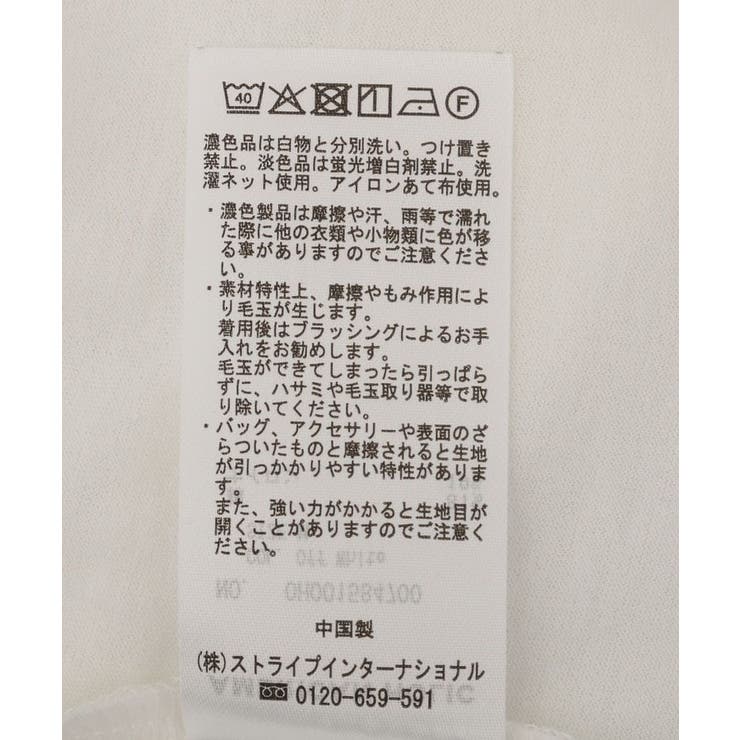 40 F
濃色品は白物と分別洗い。つけ置き
禁止。淡色品は蛍光増白剤禁止。洗
濯ネット使用。アイロンあて布使用。
・濃色製品は摩擦や汗、雨等で濡れ
た際に他の衣類や小物類に色が移
る事がありますのでご注意くださ
い。
・素材特性上、摩擦やもみ作用によ
り毛玉が生じます。
着用後はブラッシングによるお手
入れをお勧めします。
毛玉ができてしまったら引っぱら
ずに、ハサミや毛玉取り器等で取
り除いてください。
・バッグ、アクセサリーや表面のざ
らついたものと摩擦されると生地
が引っかかりやすい特性がありま
す。
また、強い力がかかると生地目が
開くことがありますのでご注意く
ださい。
Off White
NO. OH001584700
中国製
(株)ストライプインターナショナル
0120-659-591